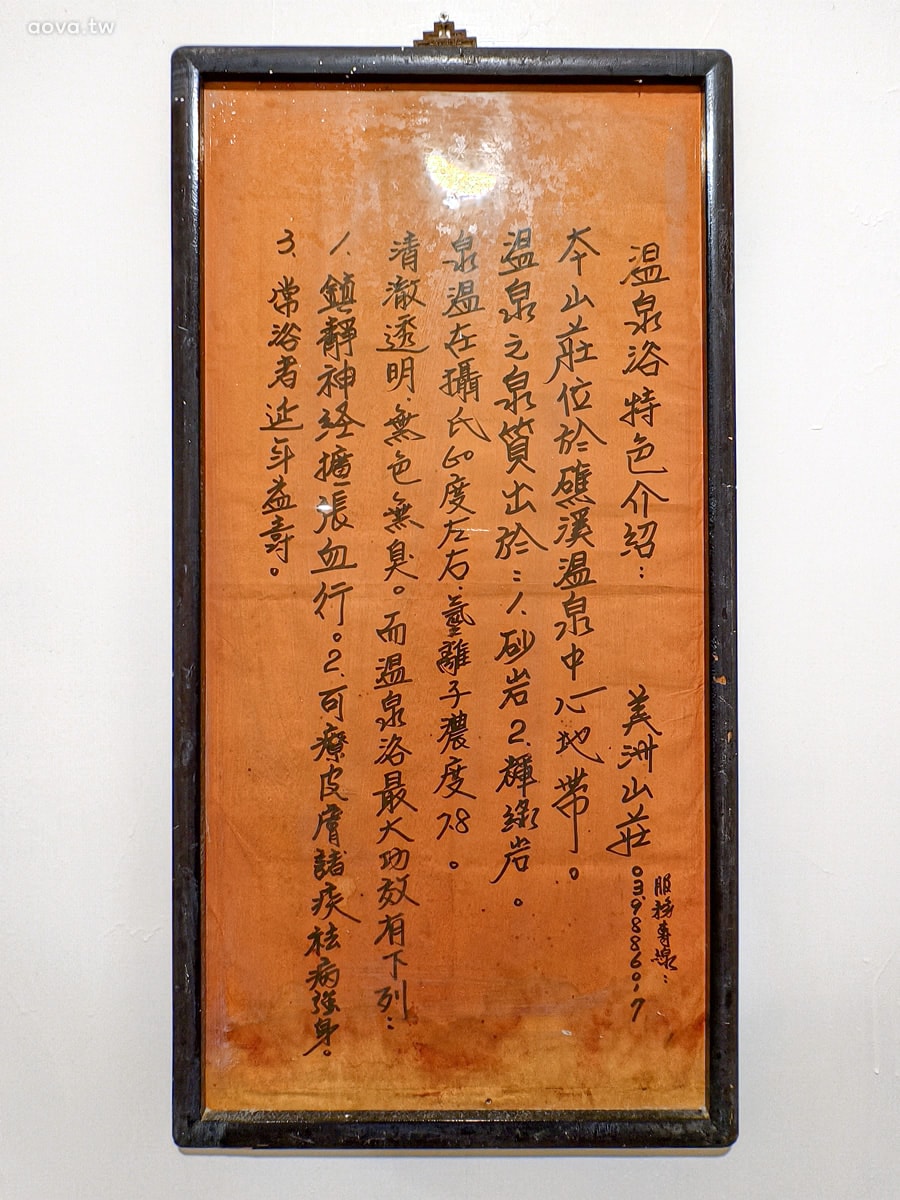 aova.tw
温泉浴特色介紹：
美洲山莊
服務專線：
039886017
本山莊位於礁溪温泉中心地帶。
温泉之泉質出於：1、砂岩2、輝綠岩。
泉温在攝氏60度左右、氫離子濃度7.8。
清澈透明、無色無臭。而温泉浴最大功效有下列：
1、鎮靜神経擴張血行。2、可療皮膚諸疾祛病強身。
3、常浴者延年益壽。